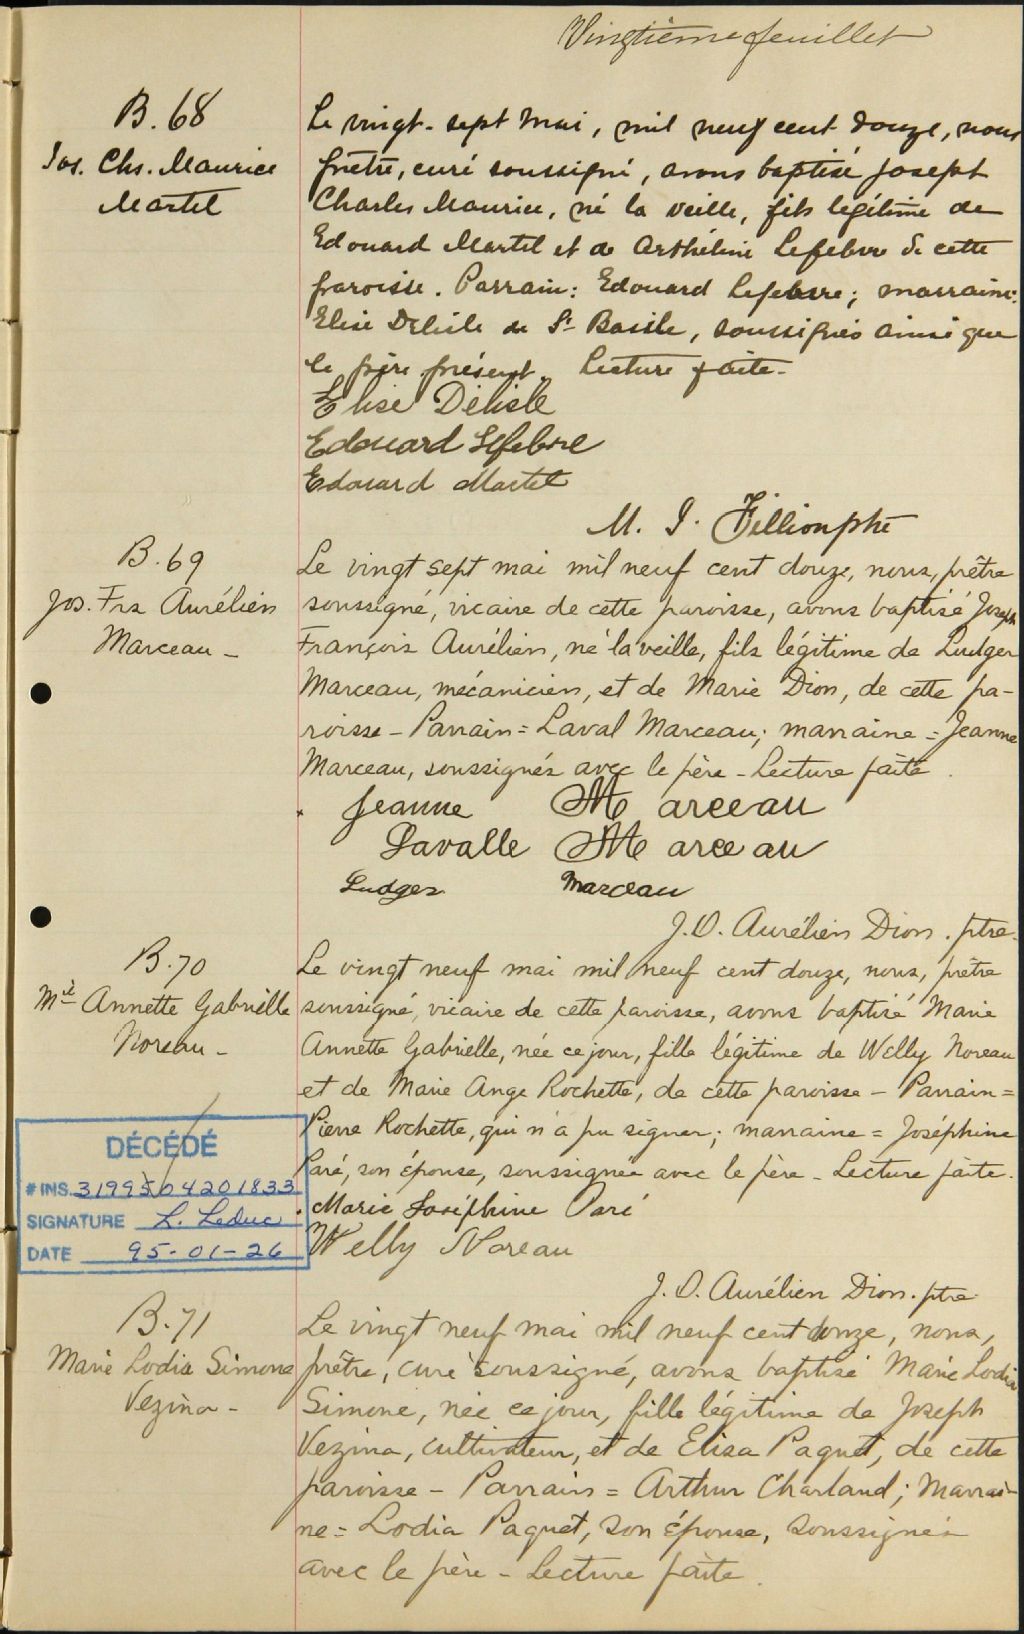 Vingtième feuillet
B. 68
Jos. Chs. Maurice
Martel
Le vingt-sept Mai, mil neuf cent douze, nous
prêtre, curé soussigné, avons baptisé Joseph
Charles Maurice, né la veille, fils légitime de
Edouard Martel et de Arthéline Lefebvre de cette
paroisse. Parrain: Edouard Lefebvre; marraine:
Elise Delisle de St Basile, soussignés ainsi que
le père présent. Lecture faite.
Elise Delisle
Edouard Lefebvre
Edouard Martel
M. J. Fillion ptre
B. 69
Jos. Frs Aurélien
Marceau -
Le vingt sept mai mil neuf cent douze, nous, prêtre
soussigné, vicaire de cette paroisse, avons baptisé Joseph
François Aurélien, né la veille, fils légitime de Ludger
Marceau, mécanicien, et de Marie Dion, de cette pa-
roisse - Parrain = Laval Marceau; marraine = Jeanne
Marceau, soussignés avec le père - Lecture faite.
Jeanne Marceau
Lavalle Marceau
Ludger Marceau
J. O. Aurélien Dion. ptre.
B. 70
Mie Annette Gabrielle
Noreau -
Le vingt neuf mai mil neuf cent douze, nous, prêtre
soussigné, vicaire de cette paroisse, avons baptisé Marie
Annette Gabrielle, née ce jour, fille légitime de Welly Noreau
et de Marie Ange Rochette, de cette paroisse - Parrain =
Pierre Rochette, qui n'a pu signer; marraine = Joséphine
Paré, son épouse, soussignée avec le père - Lecture faite.
Marie Joséphine Paré
Welly Noreau
J. O. Aurélien Dion. ptre
DÉCÉDÉ
# INS. 3199504201833
SIGNATURE L. Leduc
DATE 95-01-26
B. 71
Marie Lodia Simone
Vezina -
Le vingt neuf mai mil neuf cent douze, nous,
prêtre, curé soussigné, avons baptisé Marie Lodia
Simone, née ce jour, fille légitime de Joseph
Vezina, cultivateur, et de Elisa Paquet, de cette
paroisse - Parrain = Arthur Charland; Marrai-
ne = Lodia Paquet, son épouse, soussignés
avec le père - Lecture faite.